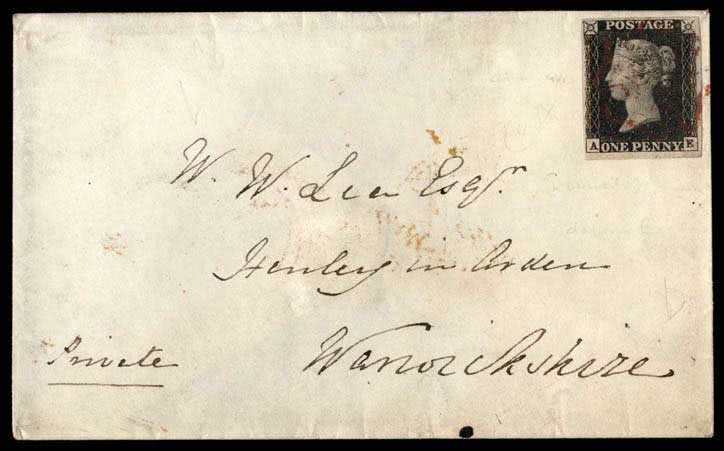 POSTAGE
A ONE PENNY E
W. W. Lea Esqr.
Henley in Arden
Warwickshire
Private